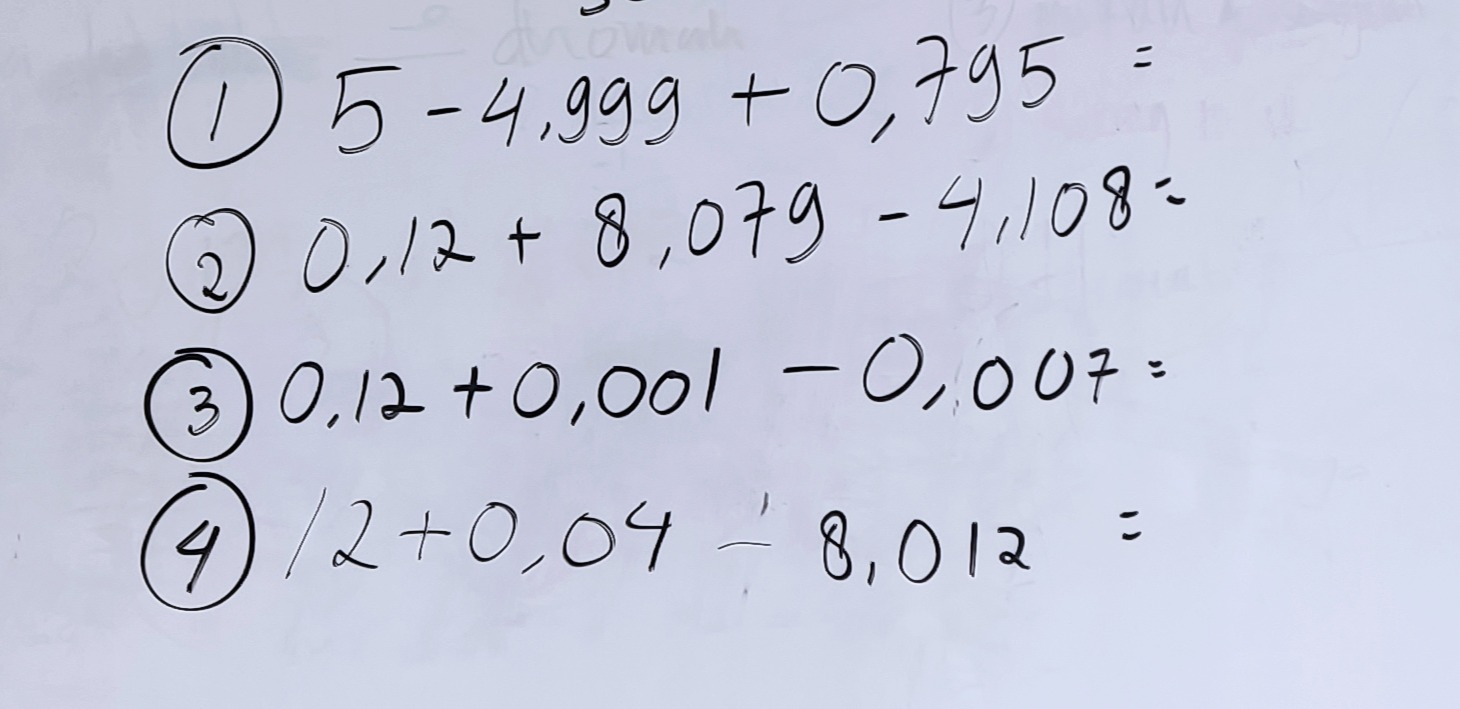 ① 5 - 4,999 + 0,795 =
② 0,12 + 8,079 - 4,108 =
③ 0,12 + 0,001 - 0,007 =
④ 12 + 0,04 - 8,012 =